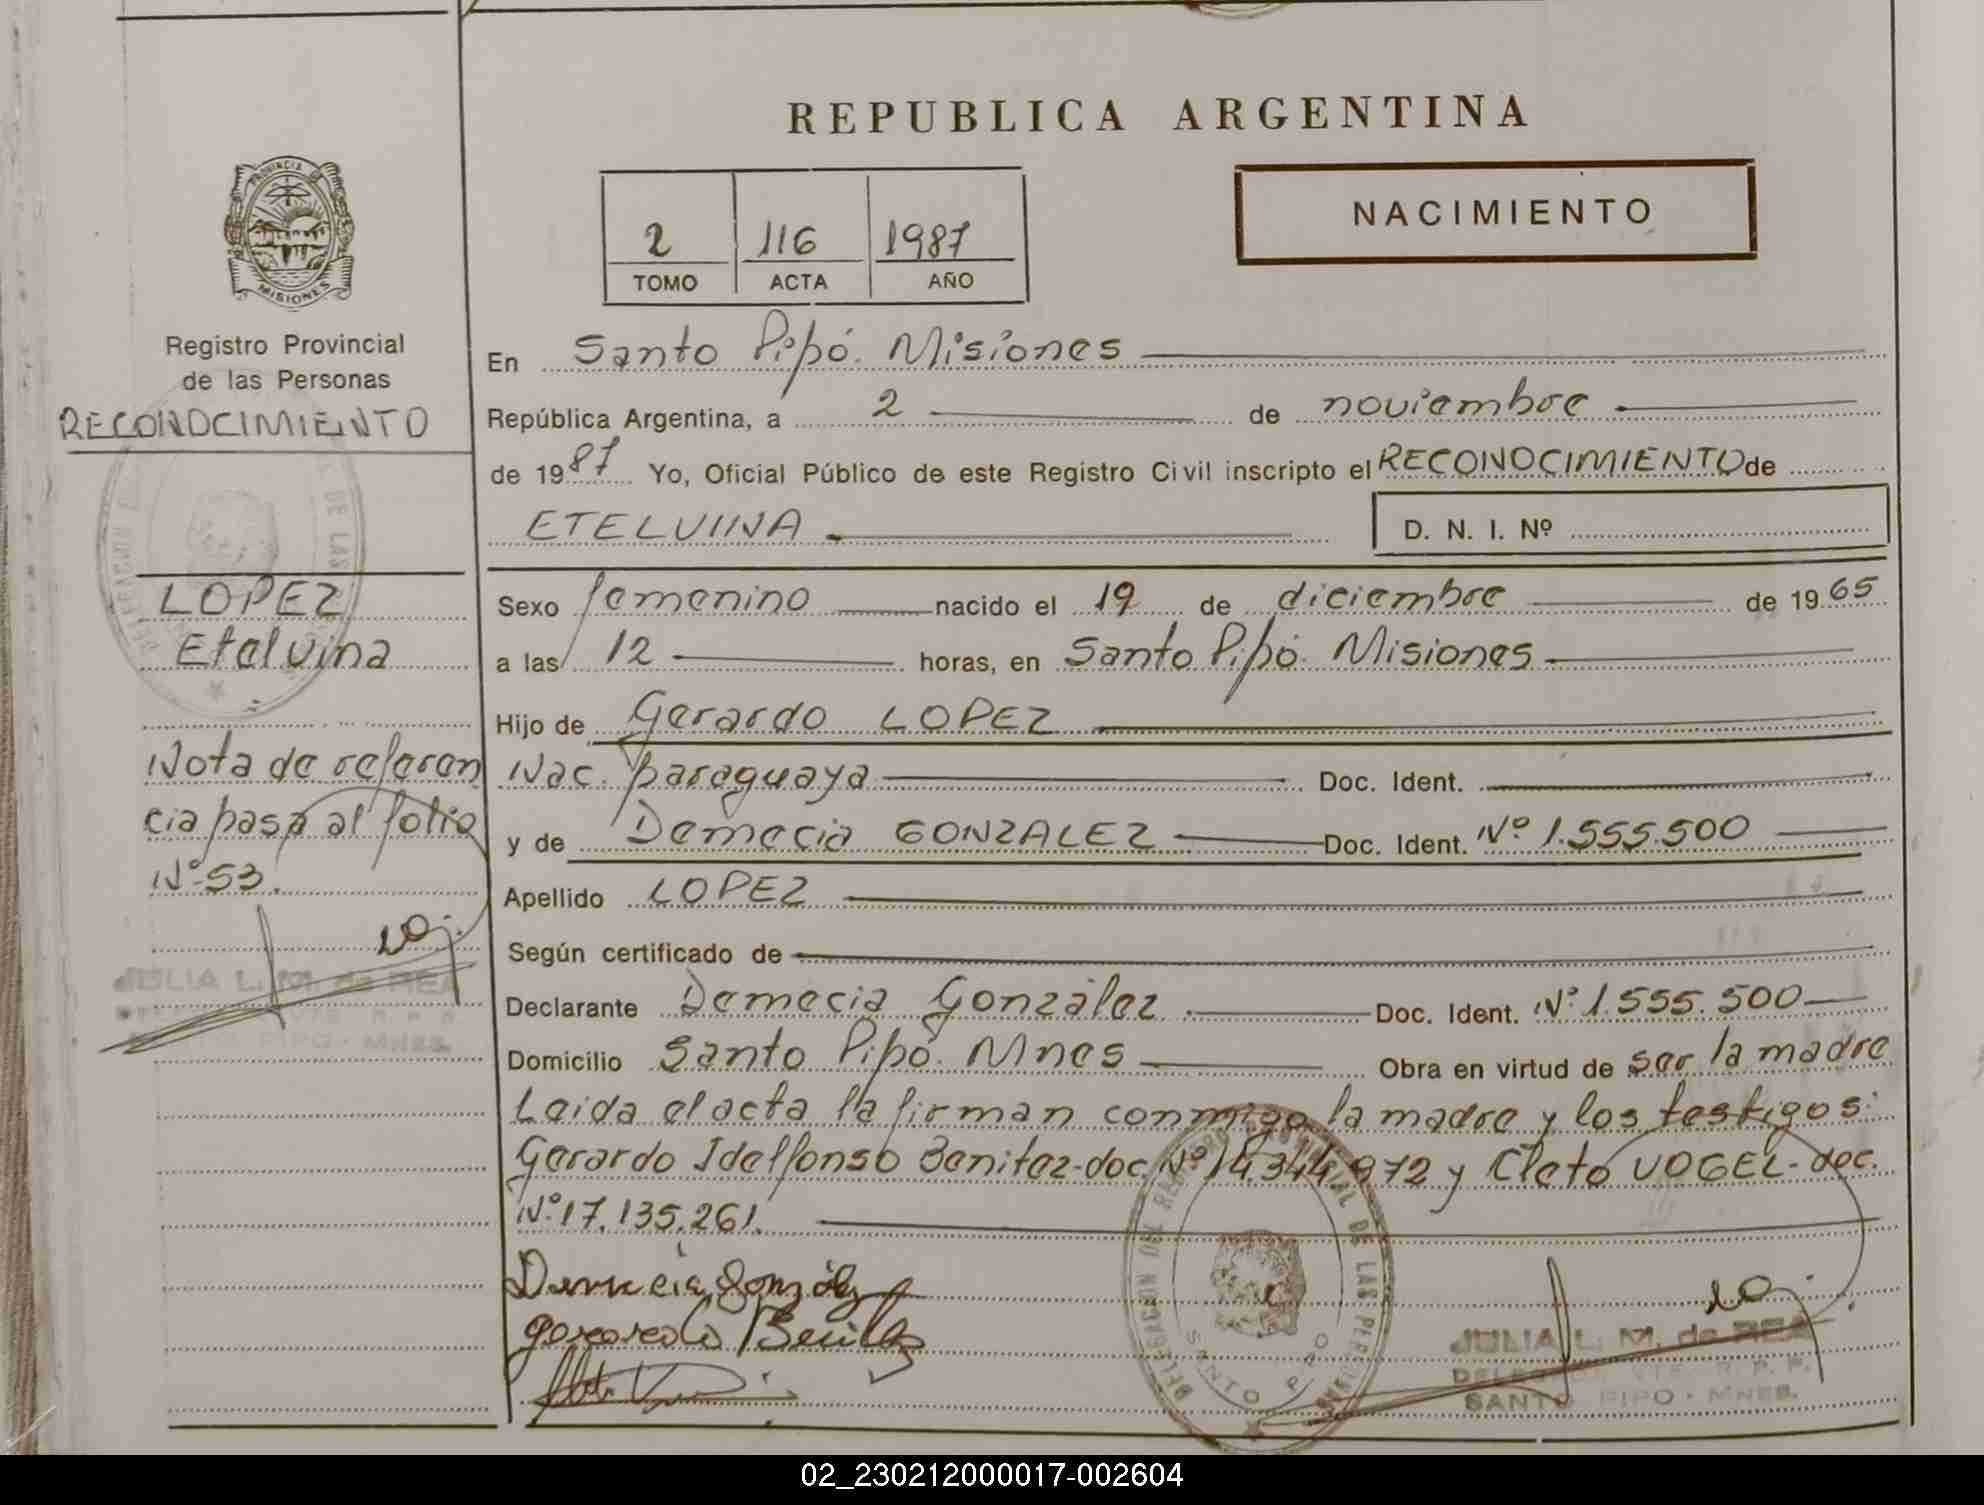 REPUBLICA ARGENTINA
PROVINCIA DE
MISIONES
2 116 1987
TOMO ACTA AÑO
NACIMIENTO
Registro Provincial
de las Personas
RECONOCIMIENTO
LOPEZ
Etelvina
Nota de referen
cia pasa al folio
Nº 53.
JULIA L. M. de REA
SANTO PIPO - MNES.
En Santo Pipó. Misiones
República Argentina, a 2 de noviembre
de 1987 Yo, Oficial Público de este Registro Civil inscripto el RECONOCIMIENTO de
ETELVINA D. N. I. Nº
Sexo femenino nacido el 19 de diciembre de 1965
a las 12 horas, en Santo Pipó. Misiones
Hijo de Gerardo LOPEZ
Nac. paraguaya Doc. Ident.
y de Demecia GONZALEZ Doc. Ident. Nº 1.555.500
Apellido LOPEZ
Según certificado de
Declarante Demecia González Doc. Ident. Nº 1.555.500
Domicilio Santo Pipó. Mnes Obra en virtud de ser la madre
Leida el acta la firman conmigo la madre y los testigos:
Gerardo Idelfonso Benitez-doc. Nº 14.344.972 y Cleto VOGEL-doc.
Nº 17.135.261.
Demecia González
Gerardo Benitez
DELEGACION DEL REGISTRO PROVINCIAL DE LAS PERSONAS
SANTO PIPO
JULIA L. M. de REA
R. P. P.
SANTO PIPO - MNES.
02_230212000017-002604